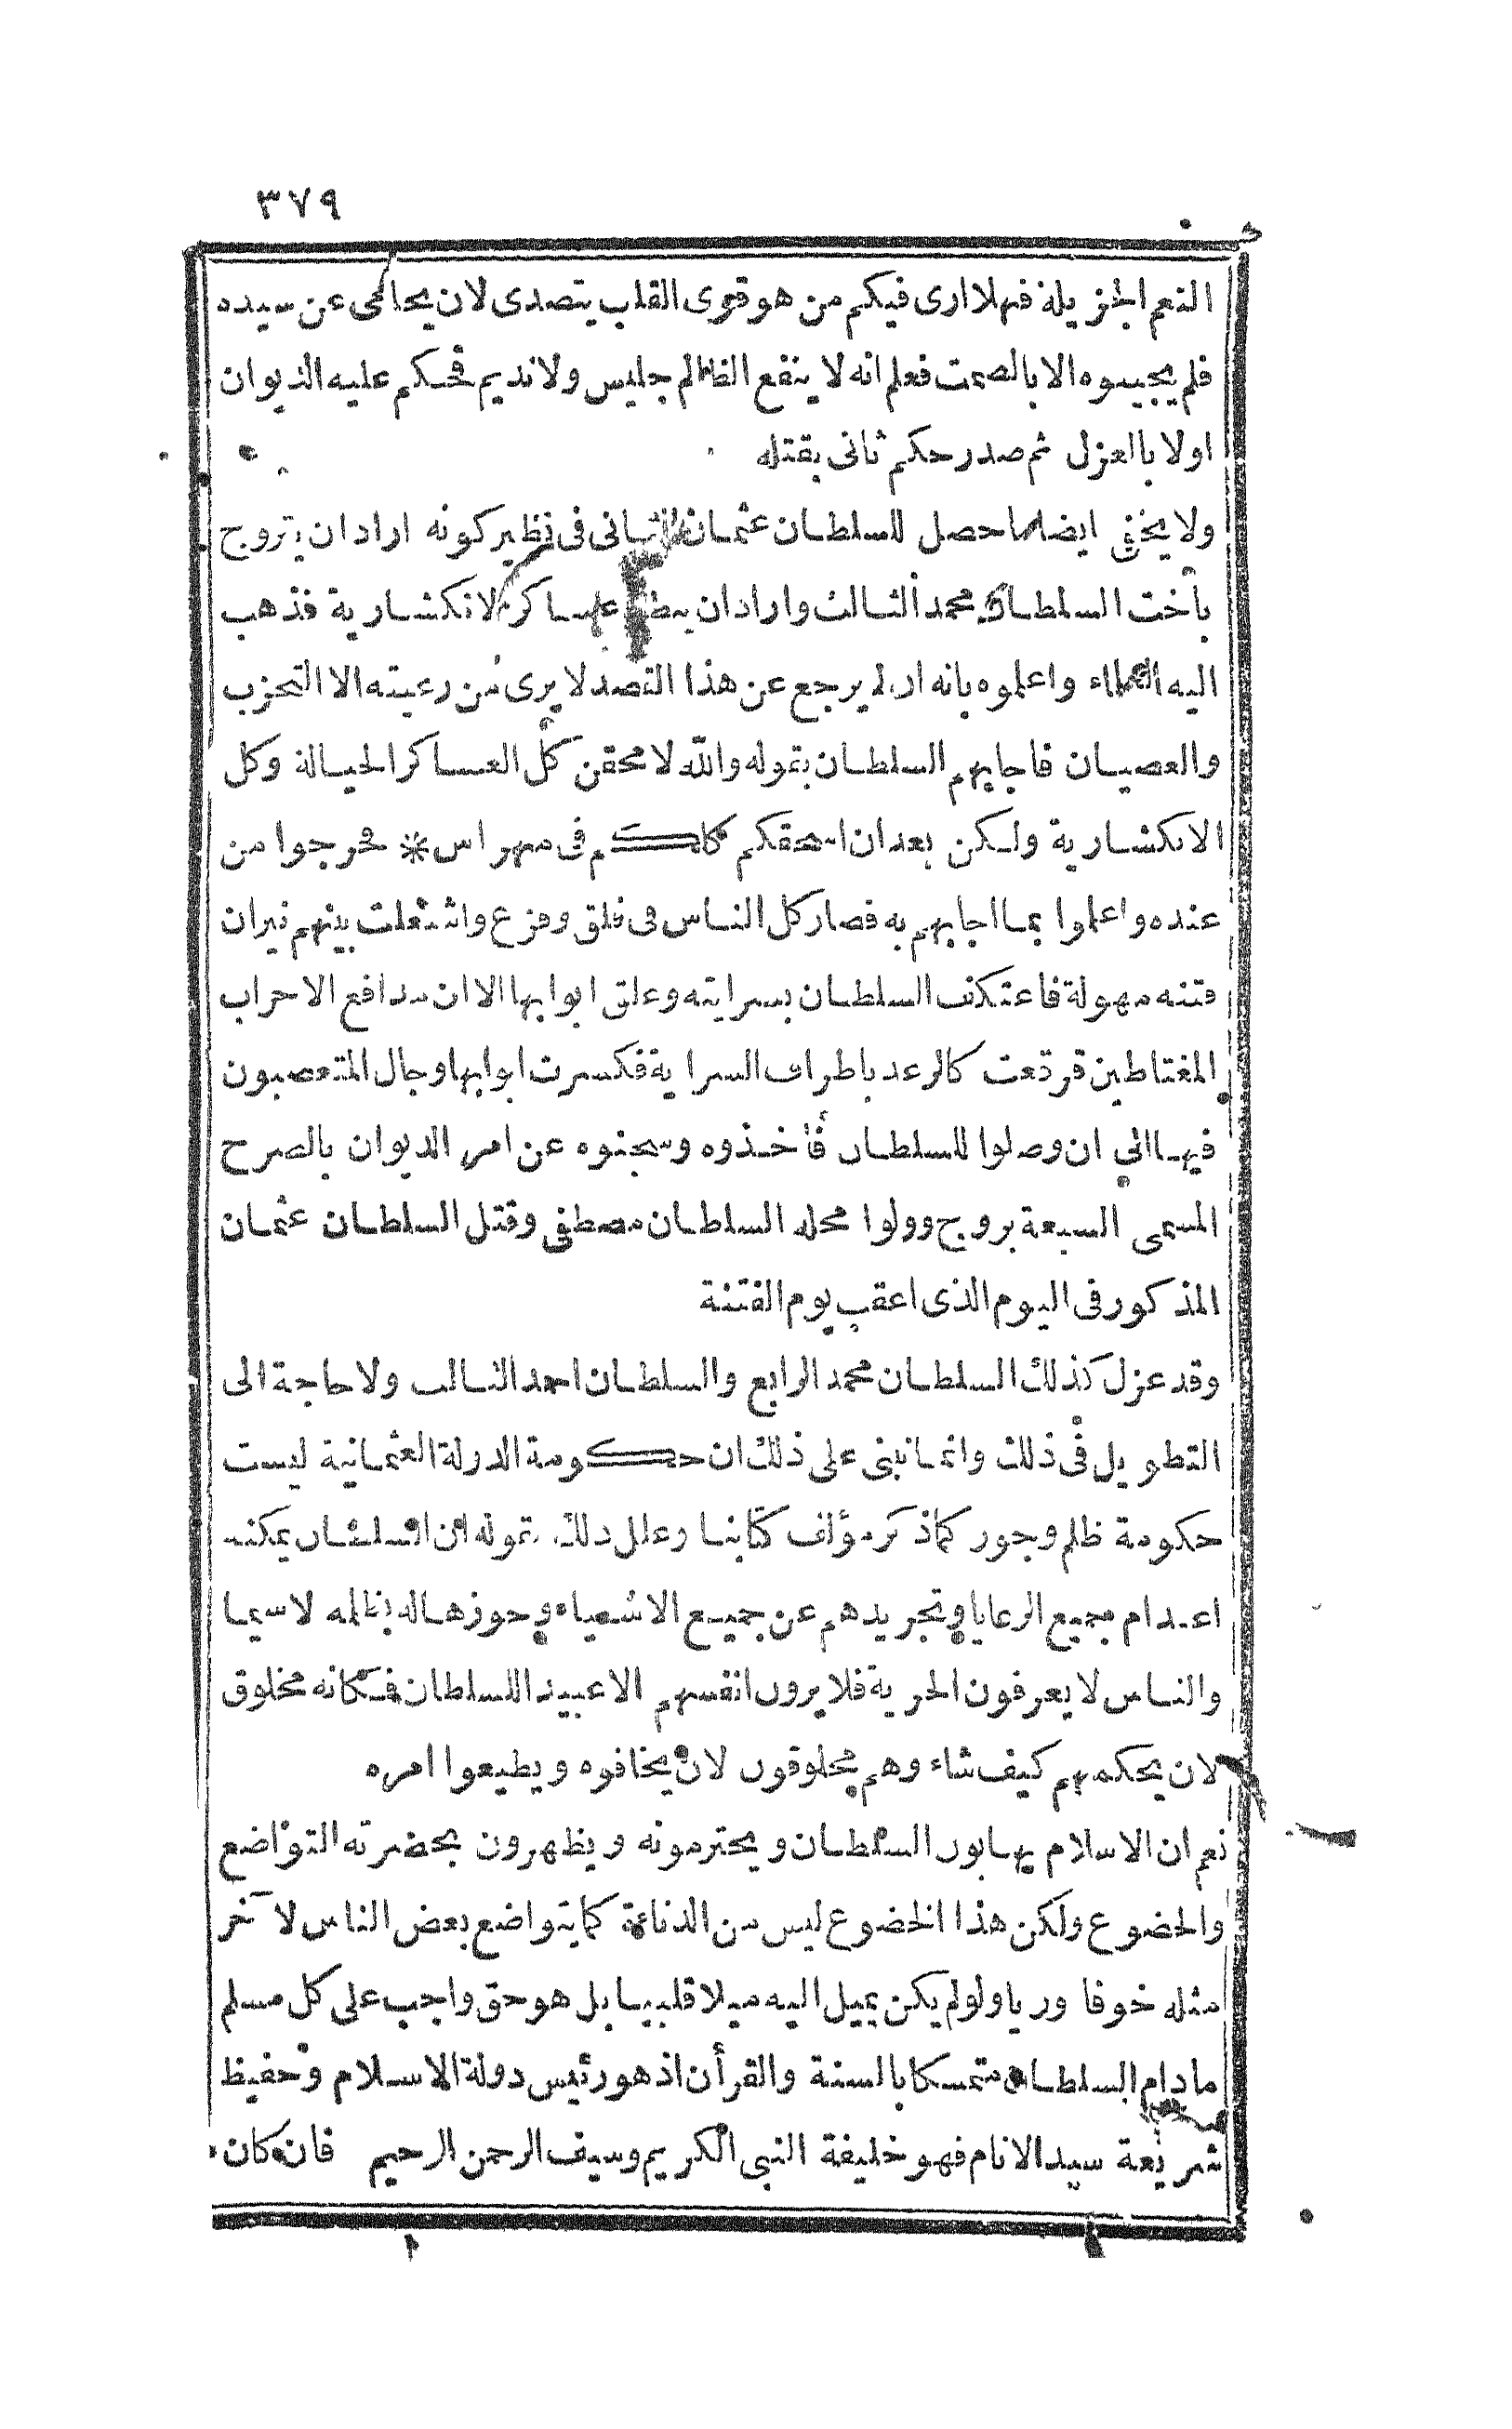 ٣٧٩
النعم الجزيلة فهلا ارى فيكم من هو قوى القلب يتصدى لان يحامى عن سيده
فلم يجيبوه الا بالصمت فعلم انه لا ينفع الظالم جليس ولا نديم فحكم عليه الديوان
اولا بالعزل ثم صدر حكم ثانى بقتله
ولا يخفى ايضا ما حصل للسلطان عثمان الثانى فى نظير كونه اراد ان يتزوج
بأخت السلطان محمد الثالث واراد ان عساكر الانكشارية فذهب
اليه العلماء واعلموه بانه ان لم يرجع عن هذا القصد لا يرى من رعيته الا التحزب
والعصيان فاجابهم السلطان بقوله والله لامحقن كل العساكر الخيالة وكل
الانكشارية ولكن بعد ان اسحقكم كلكم فى مهراس * فخرجوا من
عنده واعلموا بما اجابهم به فصار كل الناس فى قلق وفزع واشتعلت بينهم نيران
فتنه مهولة فاعتكف السلطان بسرايته وغلق ابوابها الا ان مدافع الاحزاب
المغتاظين قرقعت كالرعد باطراف السراية فكسرت ابوابها وجال المتعصبون
فيها الى ان وصلوا للسلطان فأخذوه وسجنوه عن امر الديوان بالصرح
المسمى السبعة بروج وولوا محله السلطان مصطفى وقتل السلطان عثمان
المذكور فى اليوم الذى اعقب يوم الفتنة
وقد عزل كذلك السلطان محمد الرابع والسلطان احمد الثالث ولا حاجة الى
التطويل فى ذلك وانما نبنى على ذلك ان حكومة الدولة العثمانية ليست
حكومة ظلم وجور كما ذكر مؤلف كتابنا وعلل ذلك بقوله ان السلطان يمكنه
اعدام جميع الرعايا وتجريدهم عن جميع الاشياء وحوزها له بظلمه لا سيما
والناس لا يعرفون الحرية فلا يرون انفسهم الا عبيدا للسلطان فكانه مخلوق
لان يحكمهم كيف شاء وهم مخلوقون لان يخافوه ويطيعوا امره
نعم ان الاسلام يهابون السلطان ويحترمونه ويظهرون بحضرته التواضع
والخضوع ولكن هذا الخضوع ليس من الدناءة كما يتواضع بعض الناس لآخر
مثله خوفا وريا ولو لم يكن يميل اليه ميلا قلبيا بل هو حق واجب على كل مسلم
ما دام السلطان متمسكا بالسنة والقرأن اذ هو رئيس دولة الاسلام وحفيظ
شريعة سيد الانام فهو خليفة النبى الكريم وسيف الرحمن الرحيم فان كان